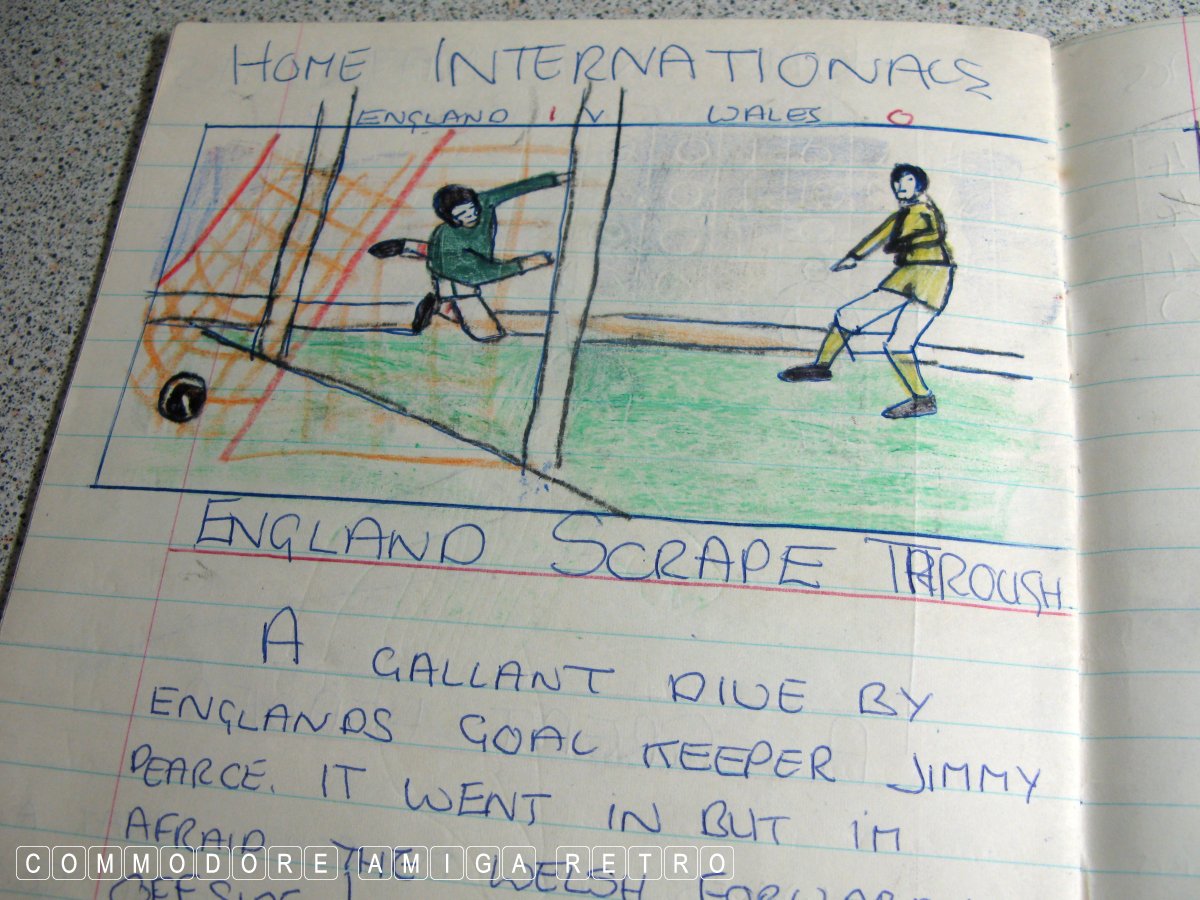 HOME INTERNATIONALS
ENGLAND 1 V WALES 0
ENGLAND SCRAPE THROUGH
A GALLANT DIVE BY
ENGLANDS GOAL KEEPER JIMMY
PEARCE. IT WENT IN BUT IM
AFRAID THE WELSH FORWARD
OFFSIDE
COMMODORE AMIGA RETRO